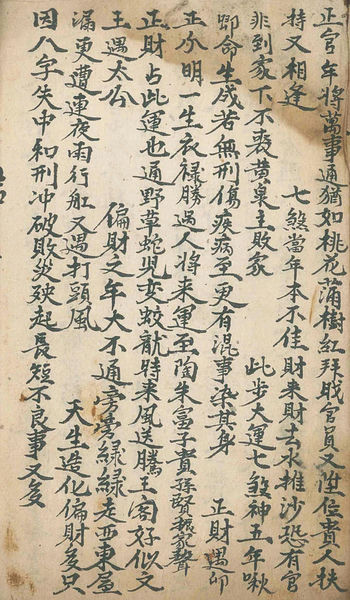 正官年將萬事通猶如桃花蒲樹紅拜職官員又陞位貴人扶
持又相逢　七煞當年本不佳財來財去水推沙恐有官
非到家下不喪黄泉主敗家　此步大運七煞神五年啾
唧命生成若無刑傷疾病至更有混事染其身　正財遇卯
正分明一生衣禄勝過人將来運至陶朱富子貴孫賢振家聲
正財占此運也通野草蛇兒变蛟龍時来風送騰王阁好似文
王遇太公　偏財文年大不通旁旁緑緑走西東屋
漏更遭連夜雨行舡又遇打頭風　天生造化偏財多只
因八字失中和刑冲破敗災殃起長短不良事又多